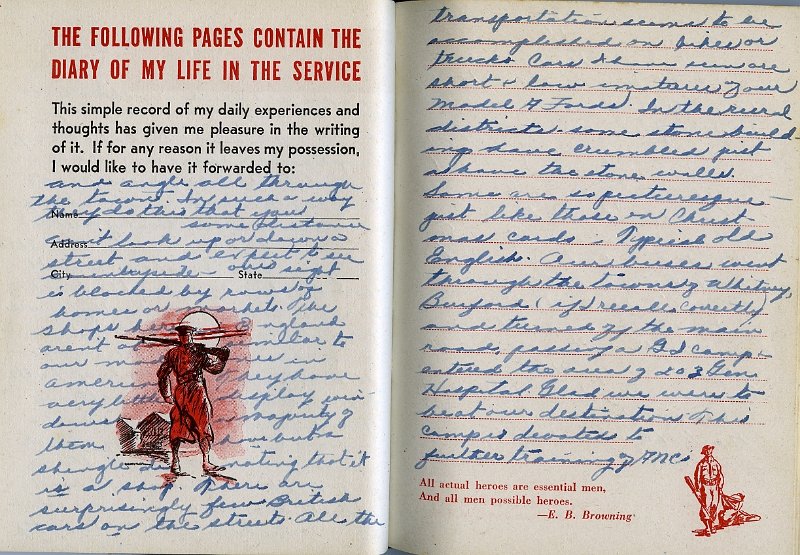 THE FOLLOWING PAGES CONTAIN THE
DIARY OF MY LIFE IN THE SERVICE
This simple record of my daily experiences and
thoughts has given me pleasure in the writing
of it. If for any reason it leaves my possession,
I would like to have it forwarded to:
and angle all through
the town. In such a way
Name they do this that you
some distance
Address it look up or down a
street and expect to see
City countryside your sight State
is blocked by rows of
homes or markets. The
shops here England
arent similar to
our in
America. They have
very little display win-
dows majority of
them have but a
shingle nating that it
is a shop. There are
surprisingly few British
cars on the streets. All the
transportation seems to be
accomplished on bikes or
trucks. Cars I have seen are
short & low imitations of our
Model T Fords. In the rural
districts, some stone build
ings have crumbled just
above the stone walls.
Some are so picturesque —
just like those on Christ
mas cards - Typical old
English. Our buses went
through the towns of Whitney,
Burford (if I recall correctly)
and turned off the main
road, passing a GI camp -
entered the area of 203 Gen
Hospital. Glad we were to
be at our destination. This
camp is devoted to
further training of MCs
All actual heroes are essential men,
And all men possible heroes.
—E. B. Browning